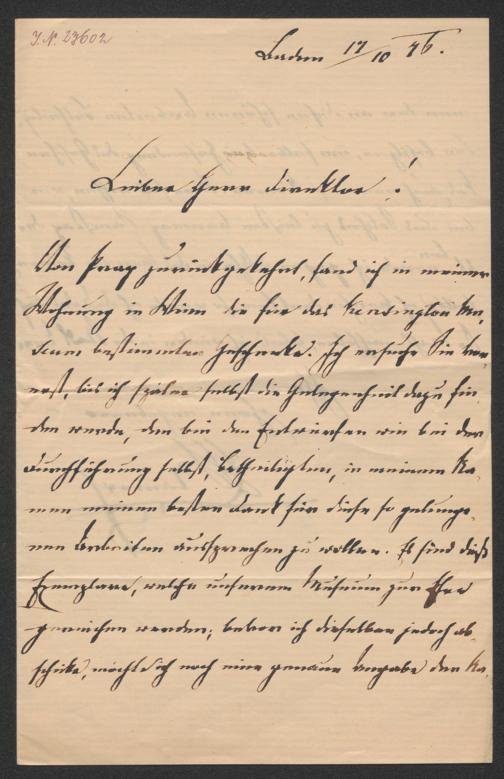 J.N. 27602
Baden 17/10 76.
Lieber Herr Direktor!
Von Prag zurückgekehrt, fand ich in meiner
Wohnung in Wien die für das Kensington Mu-
seum bestimmten Geschenke. Ich ersuche Sie vor-
erst, bis ich später selbst die Gelegenheit dazu fin-
den werde, den bei den Entwürfen wie bei der
Durchführung selbst, Betheiligten, in meinem Na-
men meinen besten Dank für diese so gelunge-
nen Arbeiten aussprechen zu wollen. Es sind dieß
Exemplare, welche unserem Museum zur Ehre
gereichen werden; bevor ich dieselben jedoch ab-
schicke, möchte ich noch eine genaue Angabe der Na-